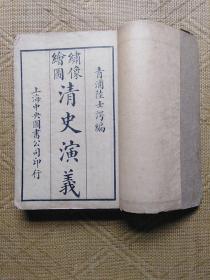 青浦陸士諤編
繡像
繪圖
清史演義
上海中央圖書公司印行